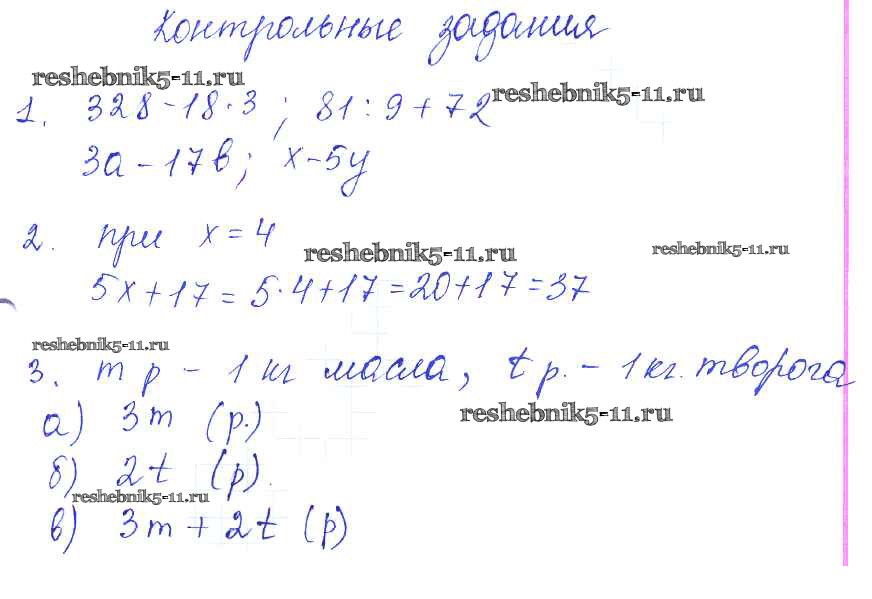 Контрольные задания
reshebnik5-11.ru
1. 328-18·3; 81:9+72
reshebnik5-11.ru
3a-17b; x-5y
2. при x=4
reshebnik5-11.ru
reshebnik5-11.ru
5x+17=5·4+17=20+17=37
reshebnik5-11.ru
3. m р - 1 кг масла, t р. - 1 кг. творога
reshebnik5-11.ru
а) 3m (р.)
б) 2t (р).
reshebnik5-11.ru
в) 3m+2t (р)